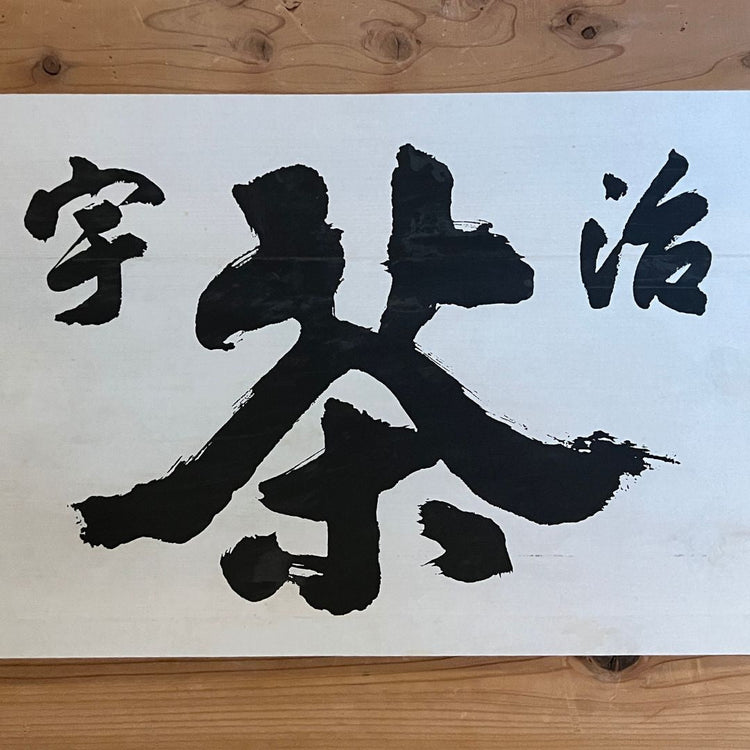 宇治茶